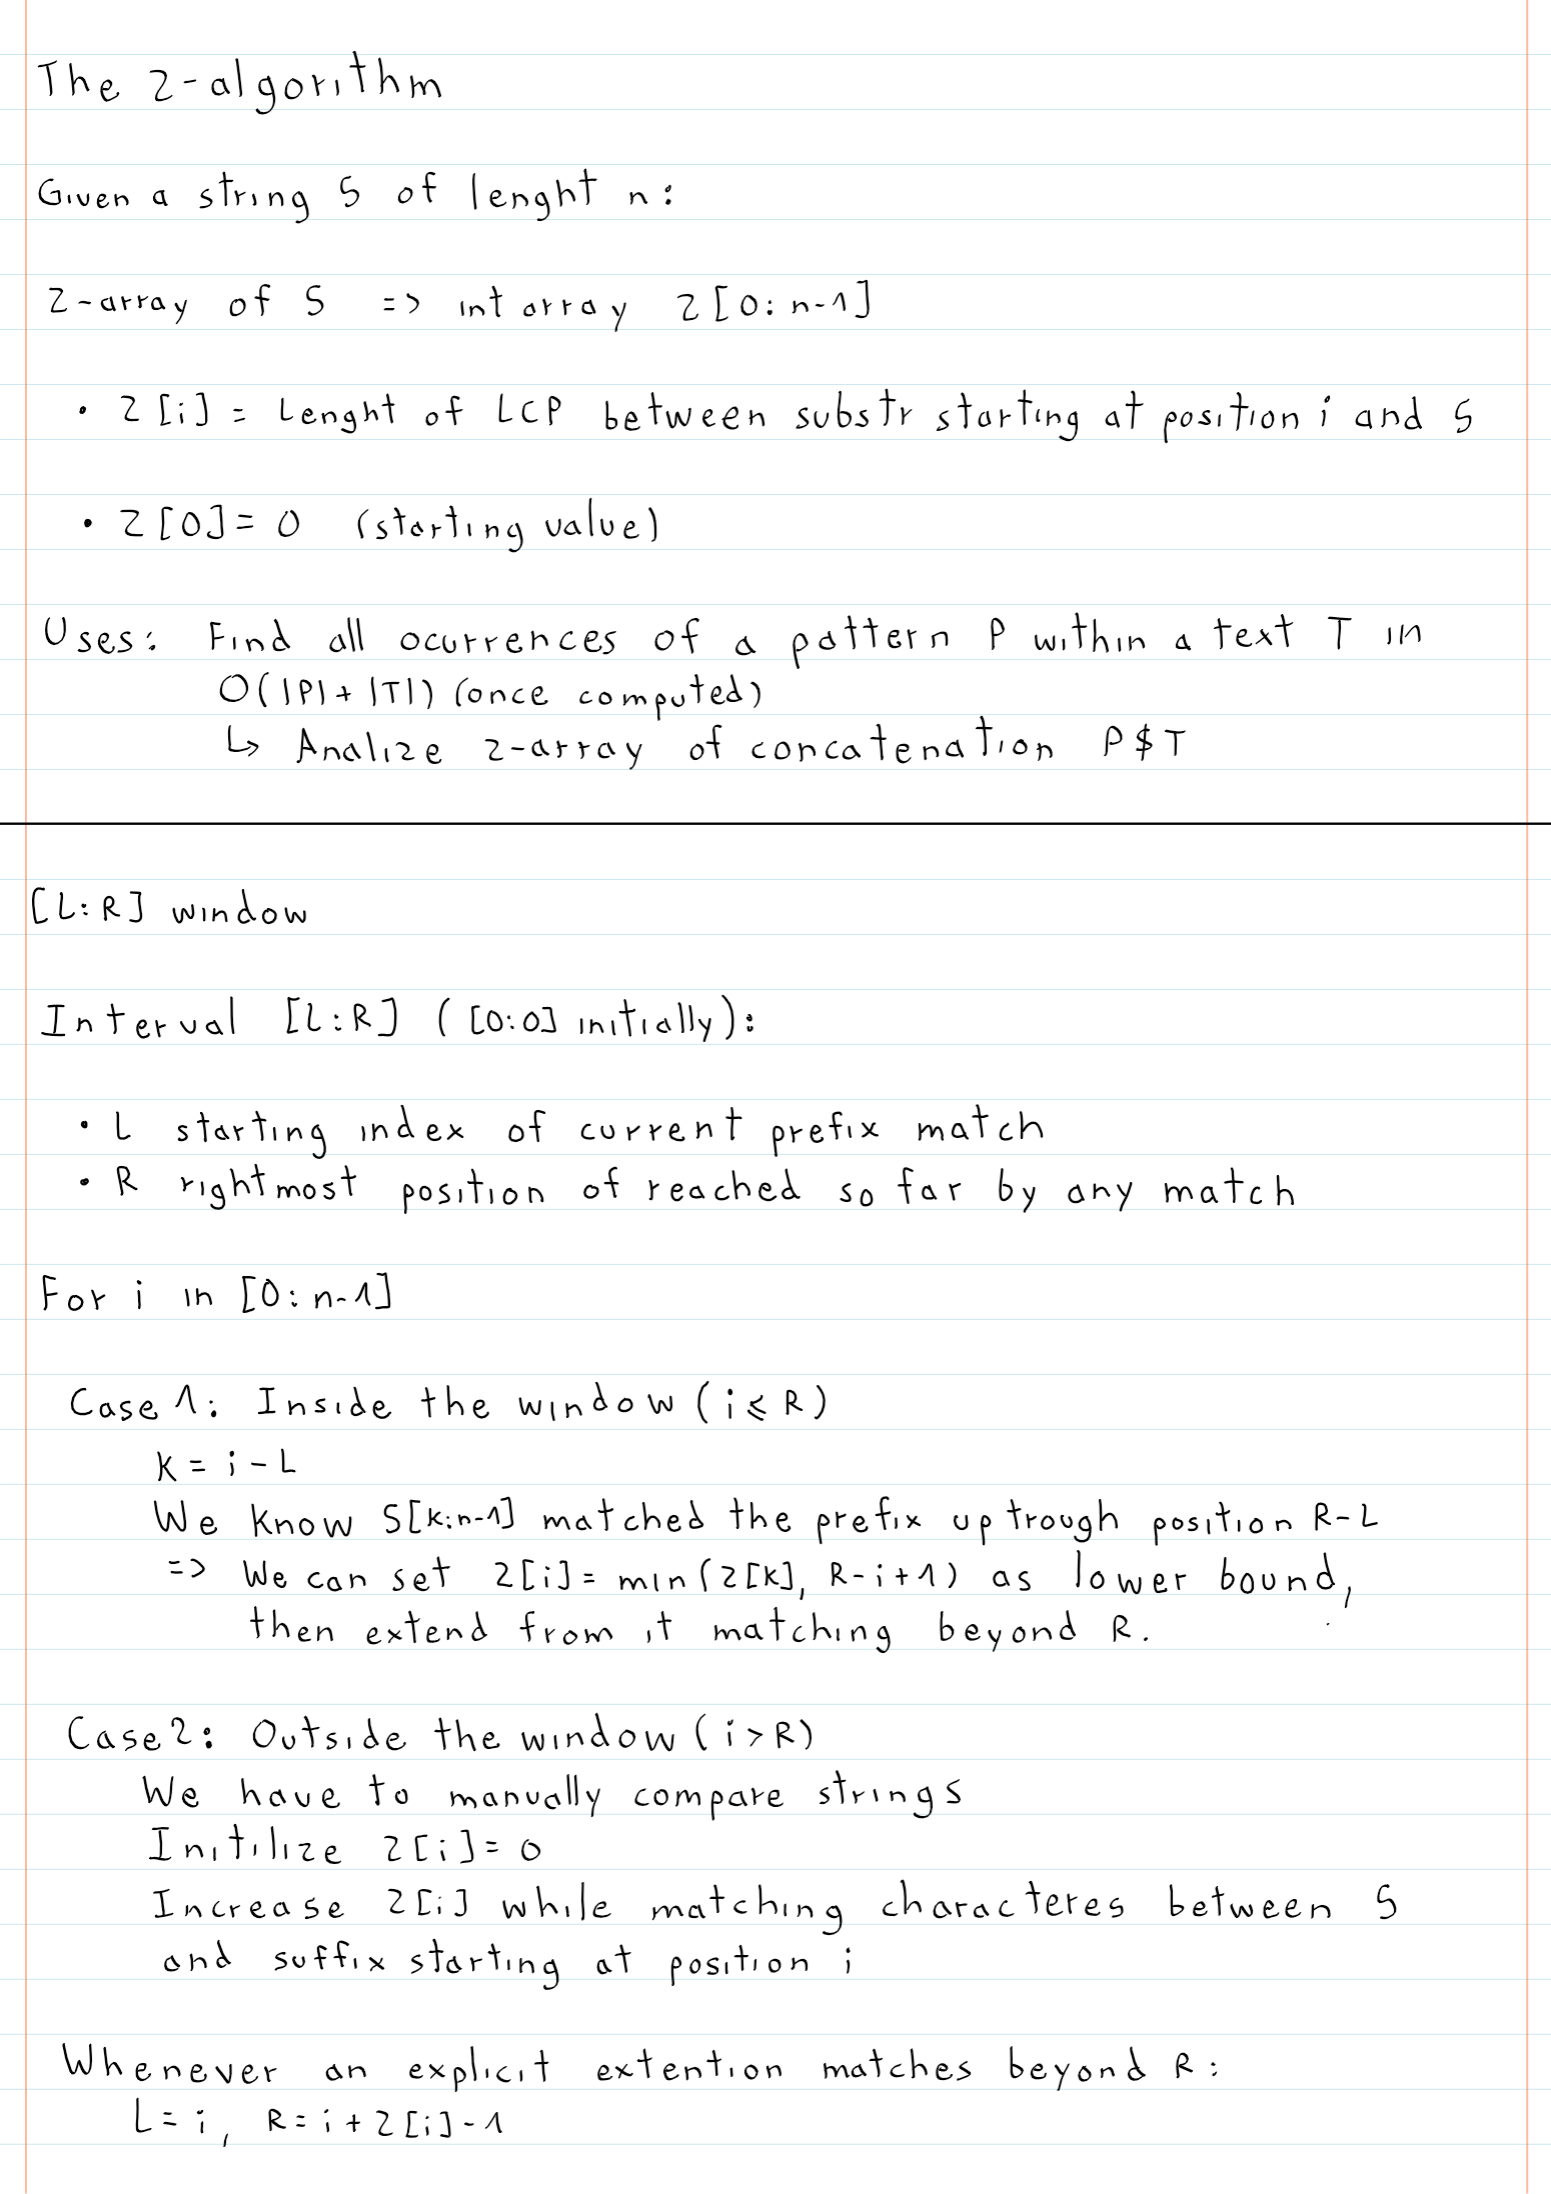 The Z-algorithm
Given a string S of lenght n:
Z-array of S => int array Z[0:n-1]
• Z[i] = Lenght of LCP between substr starting at position i and S
• Z[0]= 0 (starting value)
Uses: Find all ocurrences of a pattern P within a text T in
O(|P|+|T|) (once computed)
↳ Analize Z-array of concatenation P$T
[L:R] window
Interval [L:R] ([0:0] initially):
• L starting index of current prefix match
• R rightmost position of reached so far by any match
For i in [0:n-1]
Case 1: Inside the window (i⩽R)
K = i - L
We know S[k:n-1] matched the prefix up trough position R-L
=> We can set Z[i]= min(Z[K], R-i+1) as lower bound,
then extend from it matching beyond R.
Case 2: Outside the window (i>R)
We have to manually compare strings
Initilize Z[i]=0
Increase Z[i] while matching characteres between S
and suffix starting at position i
Whenever an explicit extention matches beyond R:
L=i, R=i+Z[i]-1